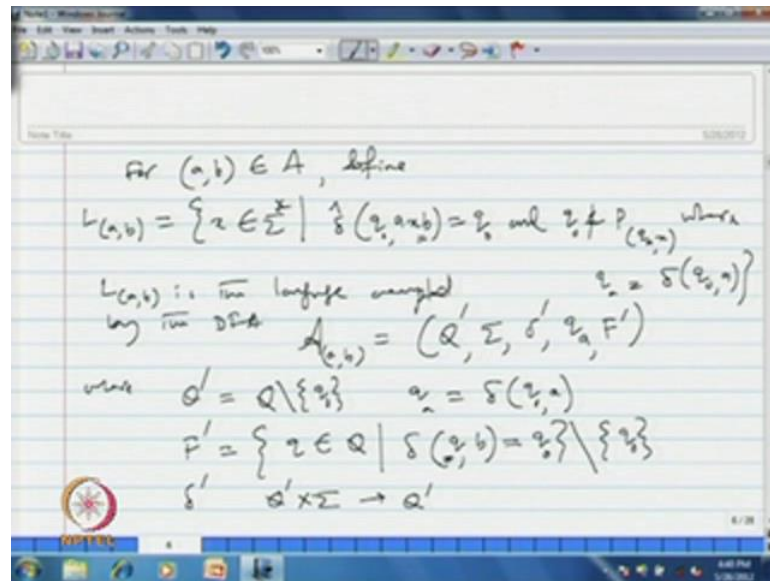 Note1 - Windows Journal
File Edit View Insert Actions Tools Help
Note Title
5/28/2012
For (a,b) ∈ A, define
L_(a,b) = {x ∈ Σ* | δ̂(q_0, axb) = q_0 and q_0 ∉ P_(q_a,x) where
q_a = δ(q_0, a)}
L_(a,b) is the language accepted
by the DFA A_(a,b) = (Q', Σ, δ', q_a, F')
where Q' = Q\{q_0} q_a = δ(q_0, a)
F' = {q ∈ Q | δ(q, b) = q_0} \ {q_0}
δ' Q' × Σ → Q'
6/28
NPTEL
6
4:40 PM
5/28/2012